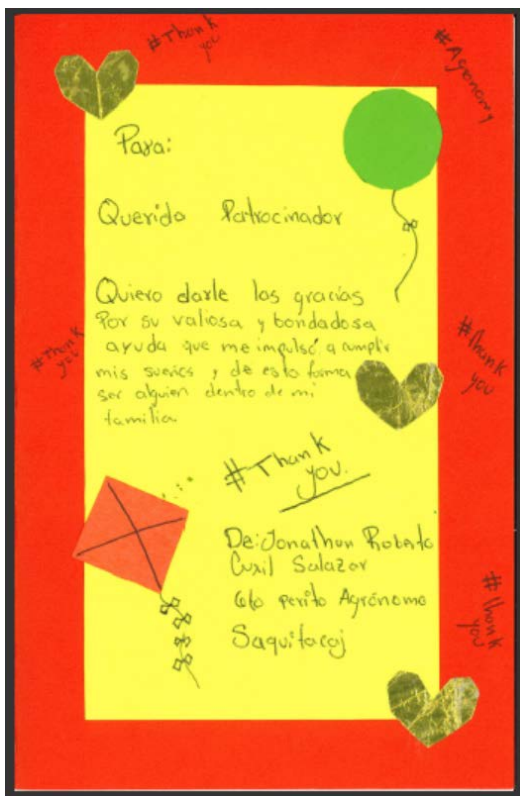 #Thank
you
#Agronomy
Para:
Querido Patrocinador
Quiero darle las gracias
Por su valiosa y bondadosa
ayuda que me impulsó a cumplir
mis sueños y de esta forma
ser alguien dentro de mi
familia.
#Thank
you
#Thank
you
#Thank
you.
De: Jonathan Roberto
Cuxil Salazar
6to perito Agrónomo
Saquitacaj
#Thank
you